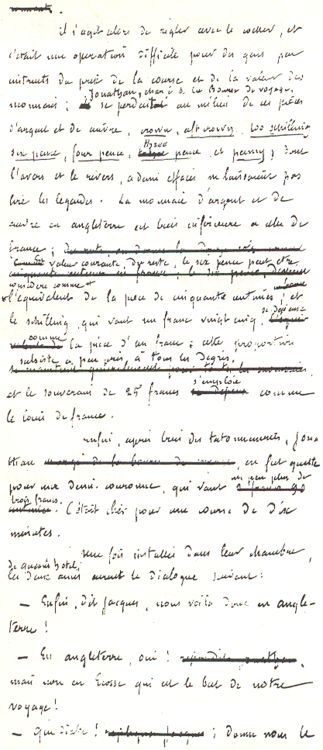 Il s'agit alors de régler avec le cocher, et
c'était une opération difficile pour des gens peu
instruits du prix de la course et de la valeur des
monnaies ; Jonathan, chargé de la bourse de voyage,
se perdait au milieu de ces pièces
d'argent et de cuivre, crown, alf crown, two schilling
six pence, four pence, three pence et penny ; dont
l'avers et le revers, à demi effacés ne laissaient pas
lire les légendes. La monnaie d'argent et de
cuivre en angleterre est bien inférieure à celle de
France ;
valeur courante, du reste, le six pence peut être
considéré comme
l'équivalent de la pièce de cinquante centimes ; et
le schilling, qui vaut un franc vingt cinq, se dépense
comme la pièce d'un franc ; cette proportion
subsiste à peu près, à tous les degrés,
et le souverain de 25 francs s'emploie comme
le louis de france.
Enfin, après bien des tatonnements, Jona
than en fut quitte
pour une demi couronne, qui vaut un peu plus de
trois francs. C'était cher pour une course de dix
minutes.
Une fois installés dans leur chambre,
de Queen's hotel,
les deux amis eurent le dialogue suivant :
— Enfin, dit Jacques, nous voilà donc en angle-
terre !
— En angleterre, oui !
mais non en Ecosse qui est le but de notre
voyage !
— Que diable ! donne nous le